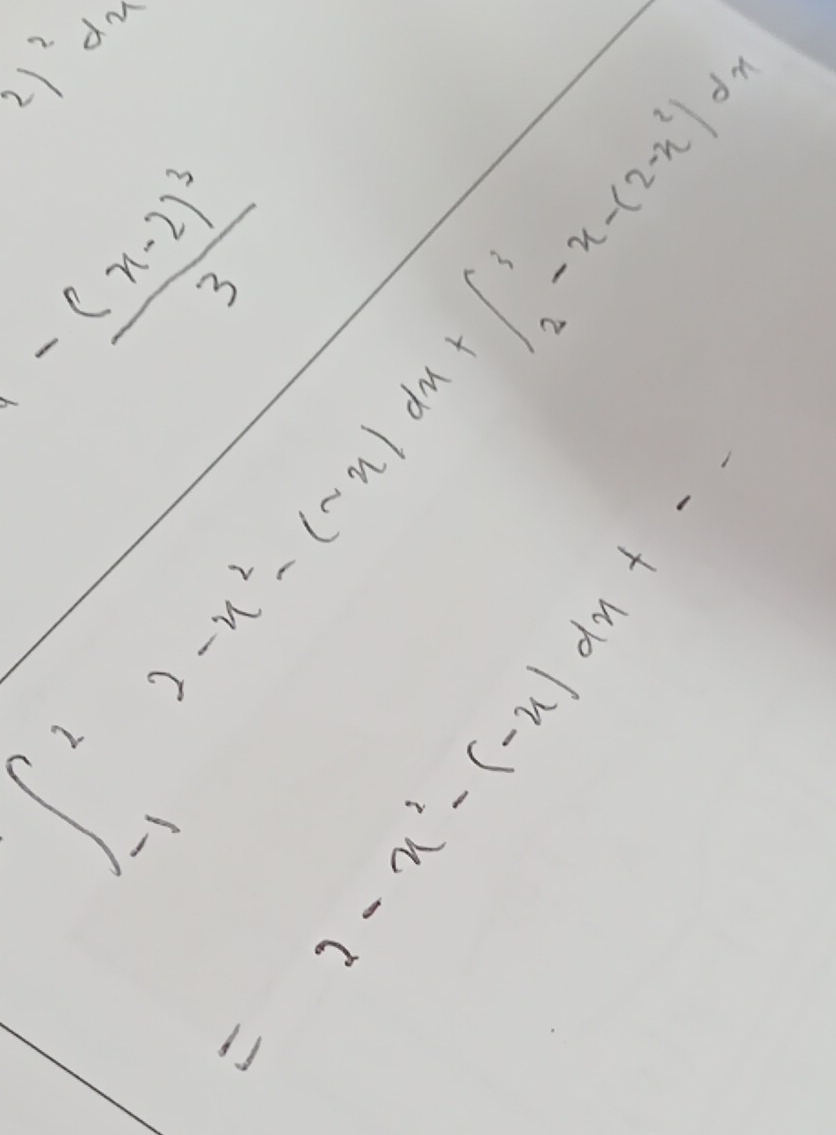 2)² dx
- (x-2)³/3
∫₋₁² 2-x²-(-x) dx + ∫₂³ -x-(2-x²) dx
= 2-x²-(-x) dx + - -